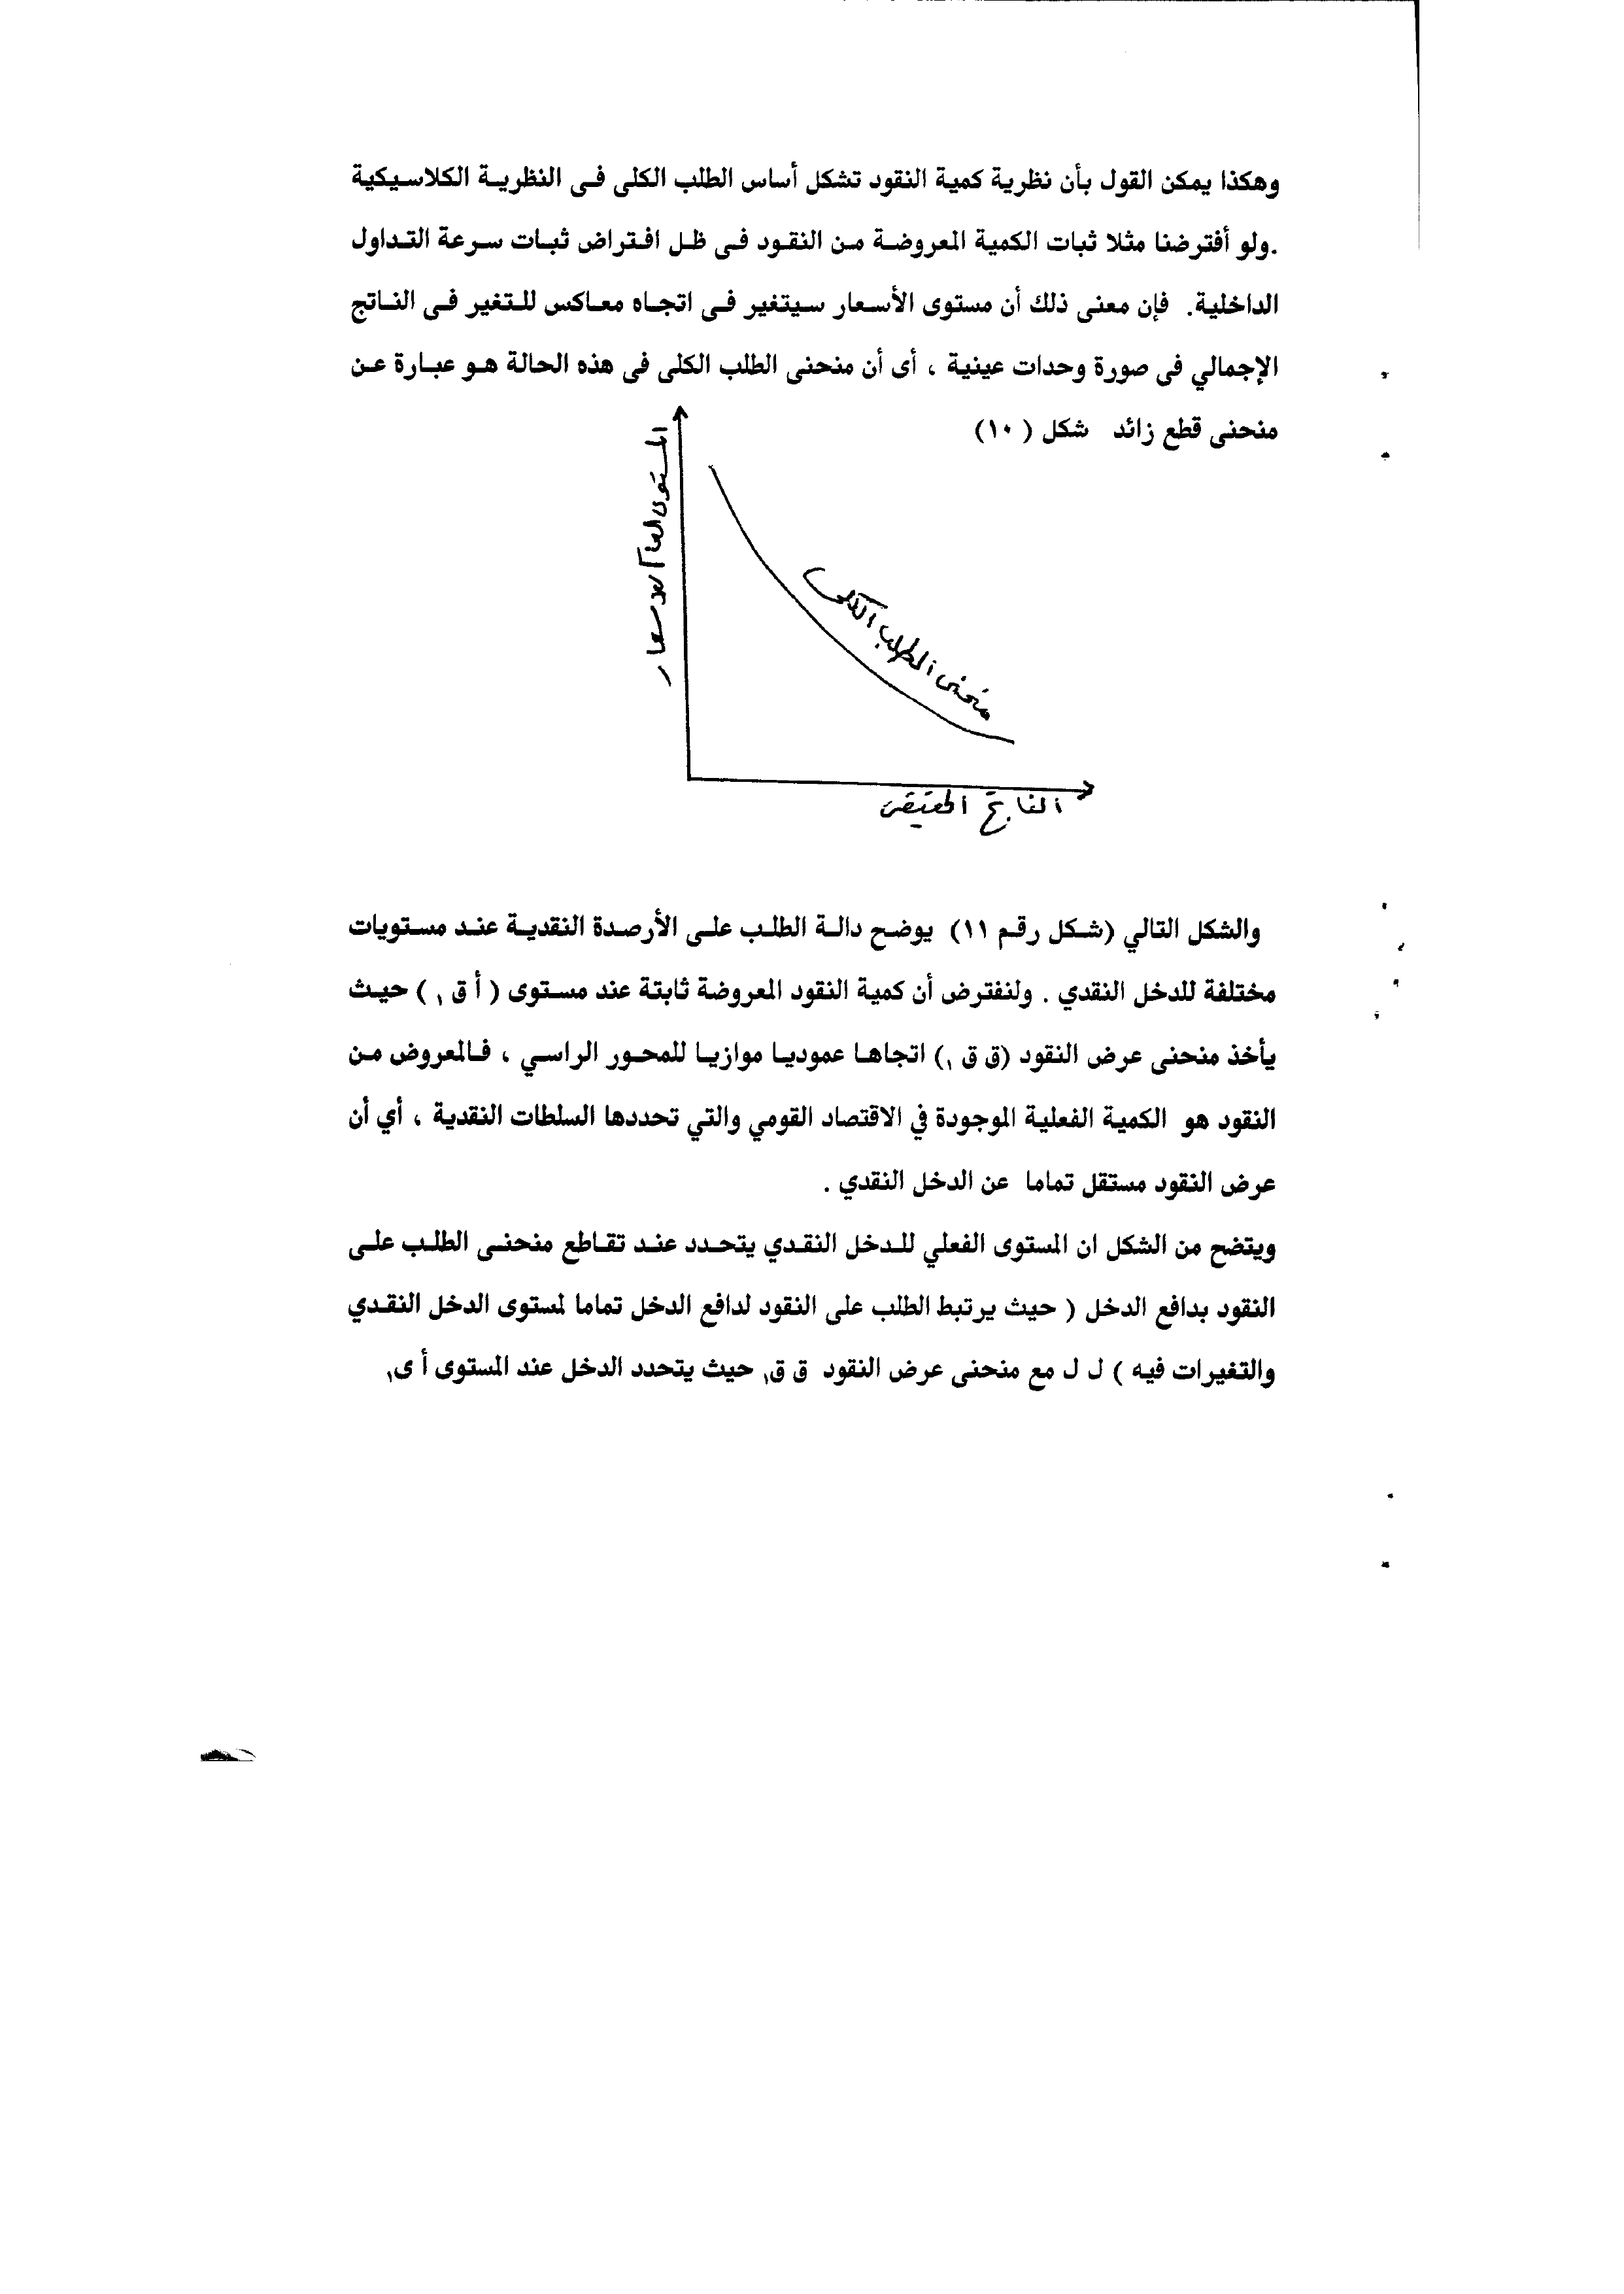 وهكذا يمكن القول بأن نظرية كمية النقود تشكل أساس الطلب الكلى فى النظرية الكلاسيكية
.ولو أفترضنا مثلا ثبات الكمية المعروضة من النقود فى ظل افتراض ثبات سرعة التداول
الداخلية. فإن معنى ذلك أن مستوى الأسعار سيتغير فى اتجاه معاكس للتغير فى الناتج
الإجمالي فى صورة وحدات عينية ، أى أن منحنى الطلب الكلى فى هذه الحالة هو عبارة عن
منحنى قطع زائد شكل ( ١٠)
المستوى العام للاسعار
منحنى الطلب الكلى
الناتج الحقيقى
والشكل التالي (شكل رقم ١١) يوضح دالة الطلب على الأرصدة النقدية عند مستويات
مختلفة للدخل النقدي . ولنفترض أن كمية النقود المعروضة ثابتة عند مستوى ( أ ق ١ ) حيث
يأخذ منحنى عرض النقود (ق ق ١) اتجاها عموديا موازيا للمحور الراسي ، فالمعروض من
النقود هو الكمية الفعلية الموجودة في الاقتصاد القومي والتي تحددها السلطات النقدية ، أي أن
عرض النقود مستقل تماما عن الدخل النقدي .
ويتضح من الشكل ان المستوى الفعلي للدخل النقدي يتحدد عند تقاطع منحنى الطلب على
النقود بدافع الدخل ( حيث يرتبط الطلب على النقود لدافع الدخل تماما لمستوى الدخل النقدي
والتغيرات فيه ) ل ل مع منحنى عرض النقود ق ق١ حيث يتحدد الدخل عند المستوى أ ى١